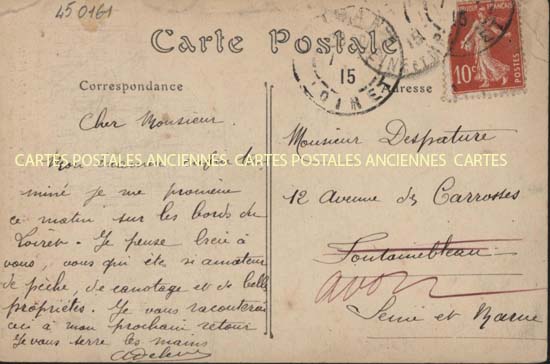 450161
Carte Postale
Correspondance
Adresse
10c
POSTES
15
LOIRET
Cher Monsieur.
Mon
miné je me promène
ce matin sur les bords du
Loiret. Je pense bien à
vous, vous qui êtes si amateur
de pêche, de canotage et de belles
propriétés. Je vous raconterai
ceci à mon prochain retour
Je vous serre les mains
Monsieur Despature
12 avenue des Carrosses
Fontainebleau
avon
Seine et Marne
CARTES POSTALES ANCIENNES CARTES POSTALES ANCIENNES CARTES